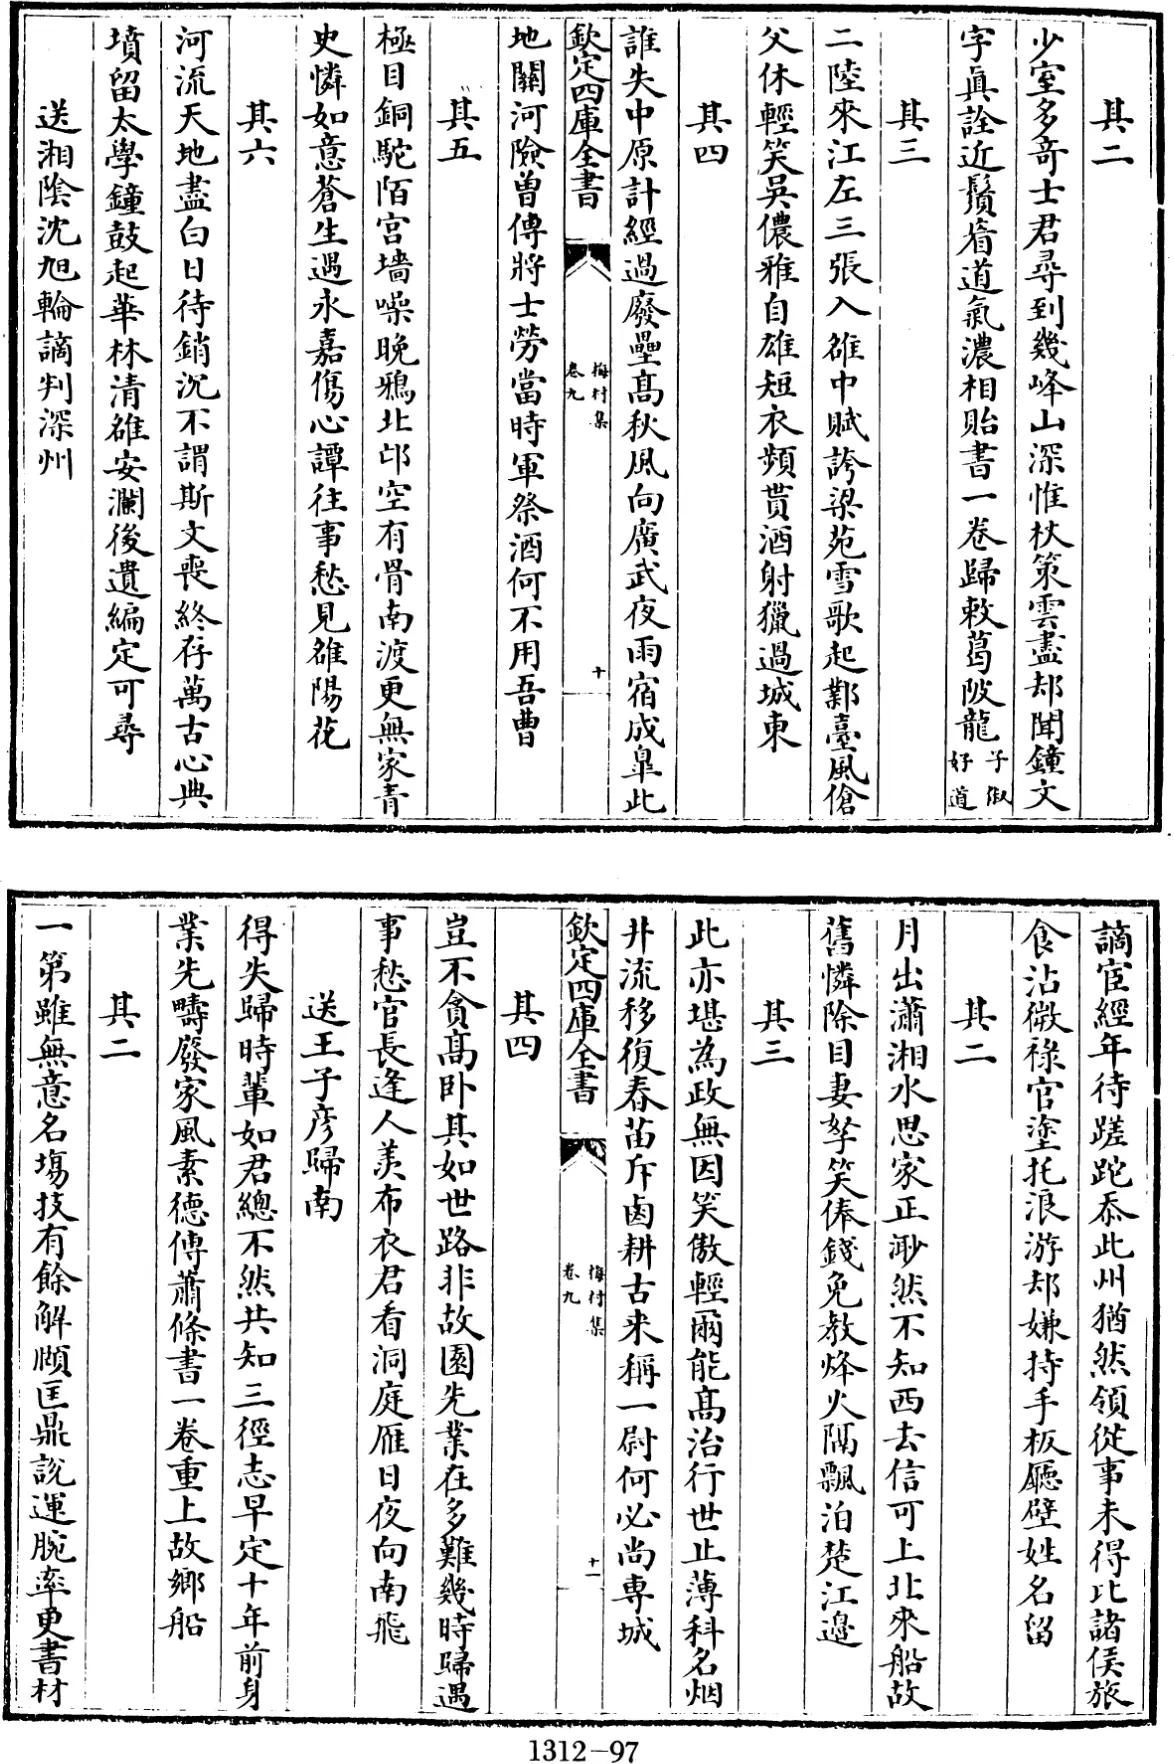 其二
少室多奇士君尋到幾峰山深惟杖策雲盡却聞鐘文
字真詮近鬚眉道氣濃相貽書一卷歸敕葛陂龍子俶好道
其三
二陸來江左三張入雒中賦誇梁苑雪歌起鄴臺風傖
父休輕笑吳儂雅自雄短衣頻貰酒射獵過城東
其四
誰失中原計經過廢壘高秋風向廣武夜雨宿成臯此
欽定四庫全書
梅村集
卷九
十
地關河險曽傳將士勞當時軍祭酒何不用吾曹
其五
極目銅駝陌宮墻噪晚鴉北邙空有骨南渡更無家青
史憐如意蒼生遇永嘉傷心譚往事愁見雒陽花
其六
河流天地盡白日待銷沉不謂斯文喪終存萬古心典
墳留太學鐘鼓起華林清雒安瀾後遺編定可尋
送湘陰沈旭輪謫判深州
謫宦經年待蹉跎忝此州猶然領從事未得比諸侯旅
食沾微祿官塗托浪游却嫌持手板廳壁姓名留
其二
月出瀟湘水思家正渺然不知西去信可上北來船故
舊憐除目妻孥笑俸錢免教烽火隔飄泊楚江邊
其三
此亦堪為政無因笑傲輕爾能高治行世止薄科名烟
井流移復春苗斥鹵耕古来稱一尉何必尚專城
欽定四庫全書
梅村集
卷九
十一
其四
豈不貪高卧其如世路非故園先業在多難幾時歸遇
事愁官長逢人羡布衣君看洞庭雁日夜向南飛
送王子彦歸南
得失歸時輩如君總不然共知三徑志早定十年前身
業先疇廢家風素德傳蕭條書一卷重上故鄉船
其二
一第雖無意名塲技有餘解頤匡鼎說運腕率更書材
1312-97